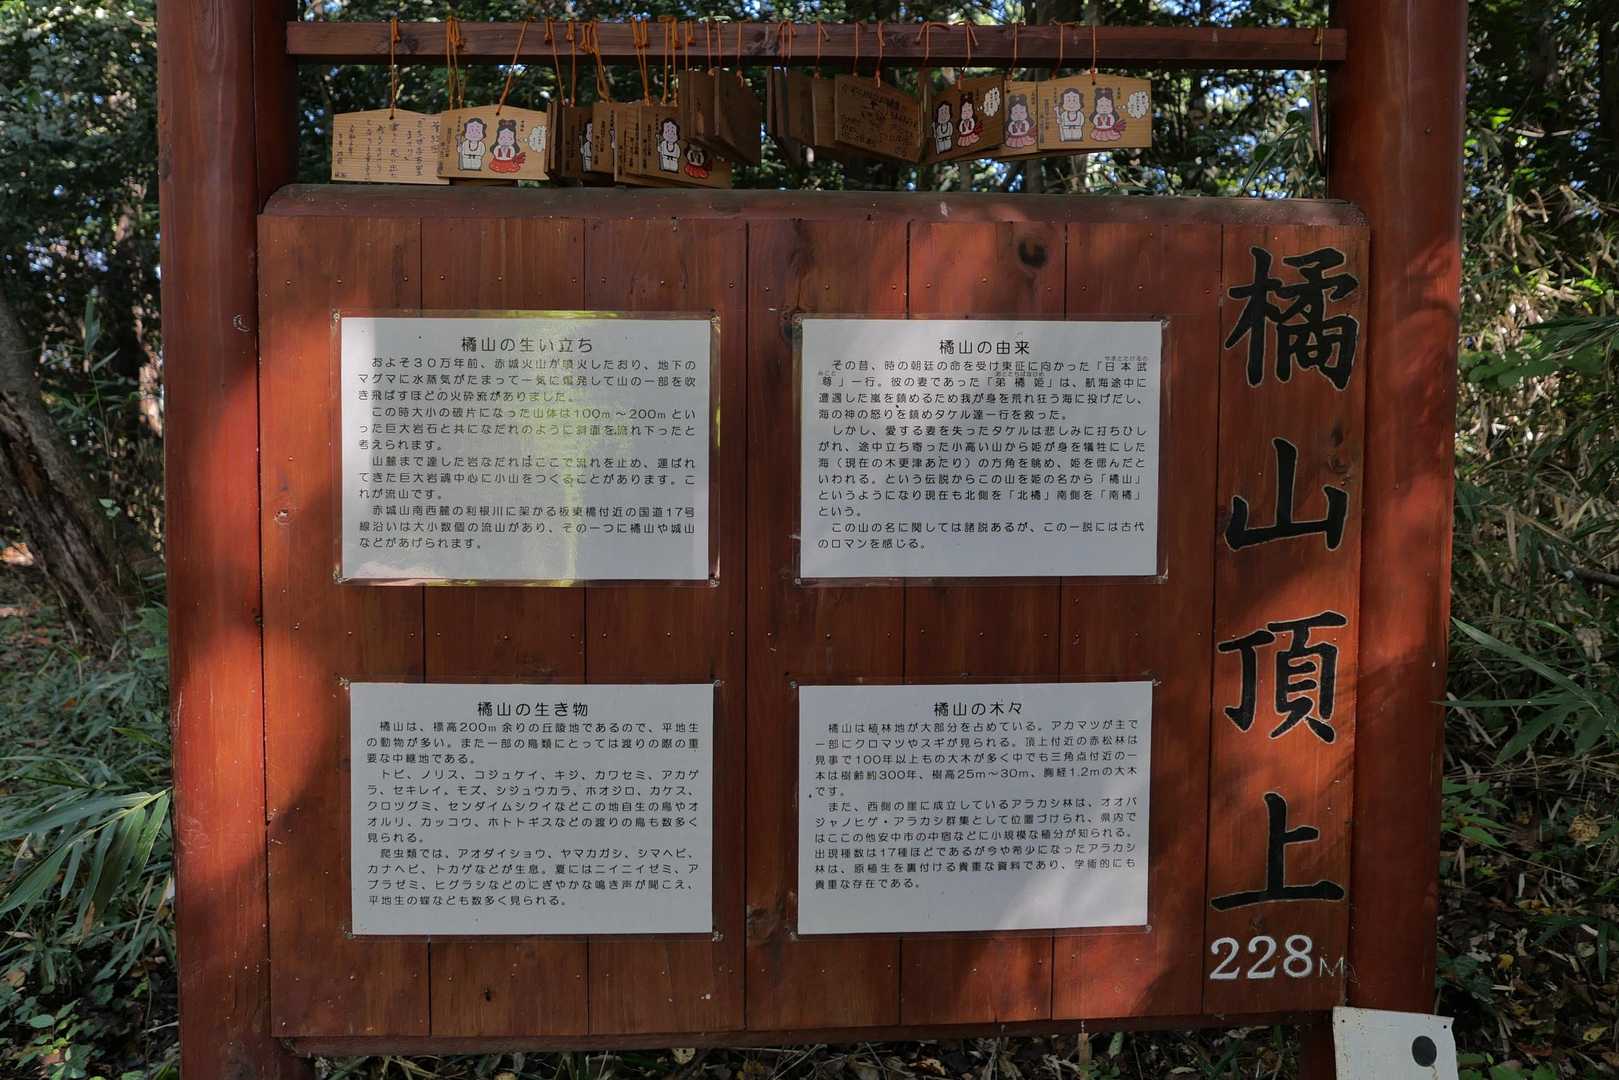 橘山頂上
228M
橘山の生い立ち
およそ３０万年前、赤城火山が噴火したおり、地下の
マグマに水蒸気がたまって一気に爆発して山の一部を吹
き飛ばすほどの火砕流がありました。
この時大小の破片になった山体は100m～200mとい
った巨大岩石と共になだれのように斜面を流れ下ったと
考えられます。
山麓まで達した岩なだれはここで流れを止め、運ばれ
てきた巨大岩魂中心に小山をつくることがあります。こ
れが流山です。
赤城山南西麓の利根川に架かる坂東橋付近の国道17号
線沿いは大小数個の流山があり、その一つに橘山や城山
などがあげられます。
橘山の由来
その昔、時の朝廷の命を受け東征に向かった「日本武
尊」一行。彼の妻であった「弟橘姫」は、航海途中に
遭遇した嵐を鎮めるため我が身を荒れ狂う海に投げだし、
海の神の怒りを鎮めタケル達一行を救った。
しかし、愛する妻を失ったタケルは悲しみに打ちひし
がれ、途中立ち寄った小高い山から姫が身を犠牲にした
海（現在の木更津あたり）の方角を眺め、姫を偲んだと
いわれる。という伝説からこの山を姫の名から「橘山」
というようになり現在も北側を「北橘」南側を「南橘」
という。
この山の名に関しては諸説あるが、この一説には古代
のロマンを感じる。
橘山の生き物
橘山は、標高200m余りの丘陵地であるので、平地生
の動物が多い。また一部の鳥類にとっては渡りの際の重
要な中継地である。
トビ、ノリス、コジュケイ、キジ、カワセミ、アカゲ
ラ、セキレイ。モズ、シジュウカラ、ホオジロ、カケス、
クロツグミ、センダイムシクイなどこの地自生の鳥やオ
オルリ、カッコウ、ホトトギスなどの渡りの鳥も数多く
見られる。
爬虫類では、アオダイショウ、ヤマカガシ、シマヘビ、
カナヘビ、トカゲなどが生息。夏にはニイニイゼミ、ア
ブラゼミ、ヒグラシなどのにぎやかな鳴き声が聞こえ、
平地生の蝶なども数多く見られる。
橘山の木々
橘山は植林地が大部分を占めている。アカマツが主で
一部にクロマツやスギが見られる。頂上付近の赤松林は
見事で100年以上もの大木が多く中でも三角点付近の一
本は樹齢約300年、樹高25m～30m、胸経1.2mの大木
です。
また、西側の崖に成立しているアラカシ林は、オオバ
ジャノヒゲ・アラカシ群集として位置づけられ、県内で
はここの他安中市の中宿などに小規模な植分が知られる。
出現種数は17種ほどであるが今や希少になったアラカシ
林は、原植生を裏付ける貴重な資料であり、学術的にも
貴重な存在である。